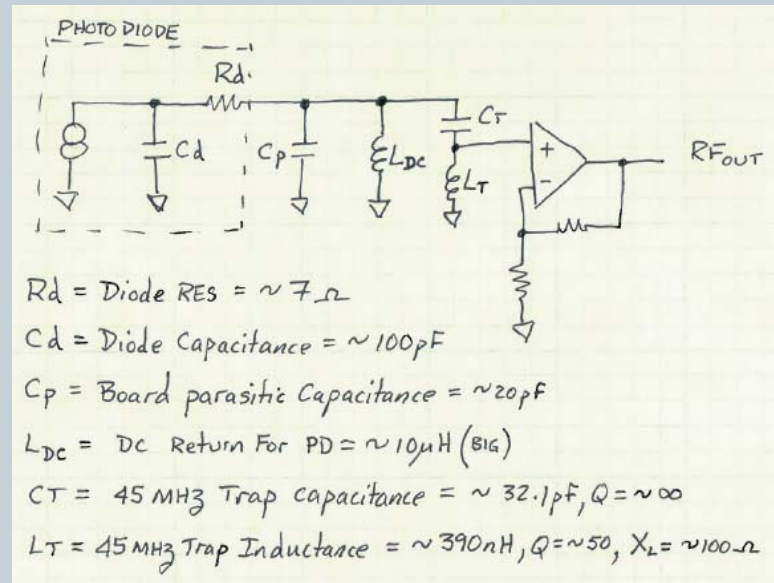 PHOTO DIODE
Rd.
Cd
Cp
LDC
CT
LT
+
-
RFOUT
Rd = Diode RES = ~ 7 Ω
Cd = Diode Capacitance = ~ 100pF
Cp = Board parasitic Capacitance = ~20pF
LDC = DC Return For PD = ~ 10μH (BIG)
CT = 45 MHz Trap Capacitance = ~ 32.1pF, Q = ~ ∞
LT = 45 MHz Trap Inductance = ~ 390nH, Q = ~50, XL = ~100 Ω